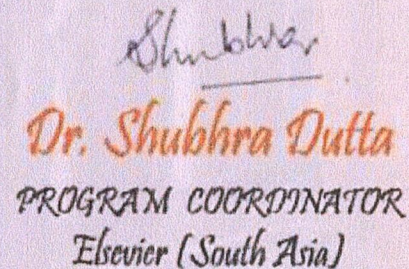 Shubhra
Dr. Shubhra Dutta
PROGRAM COORDINATOR
Elsevier (South Asia)